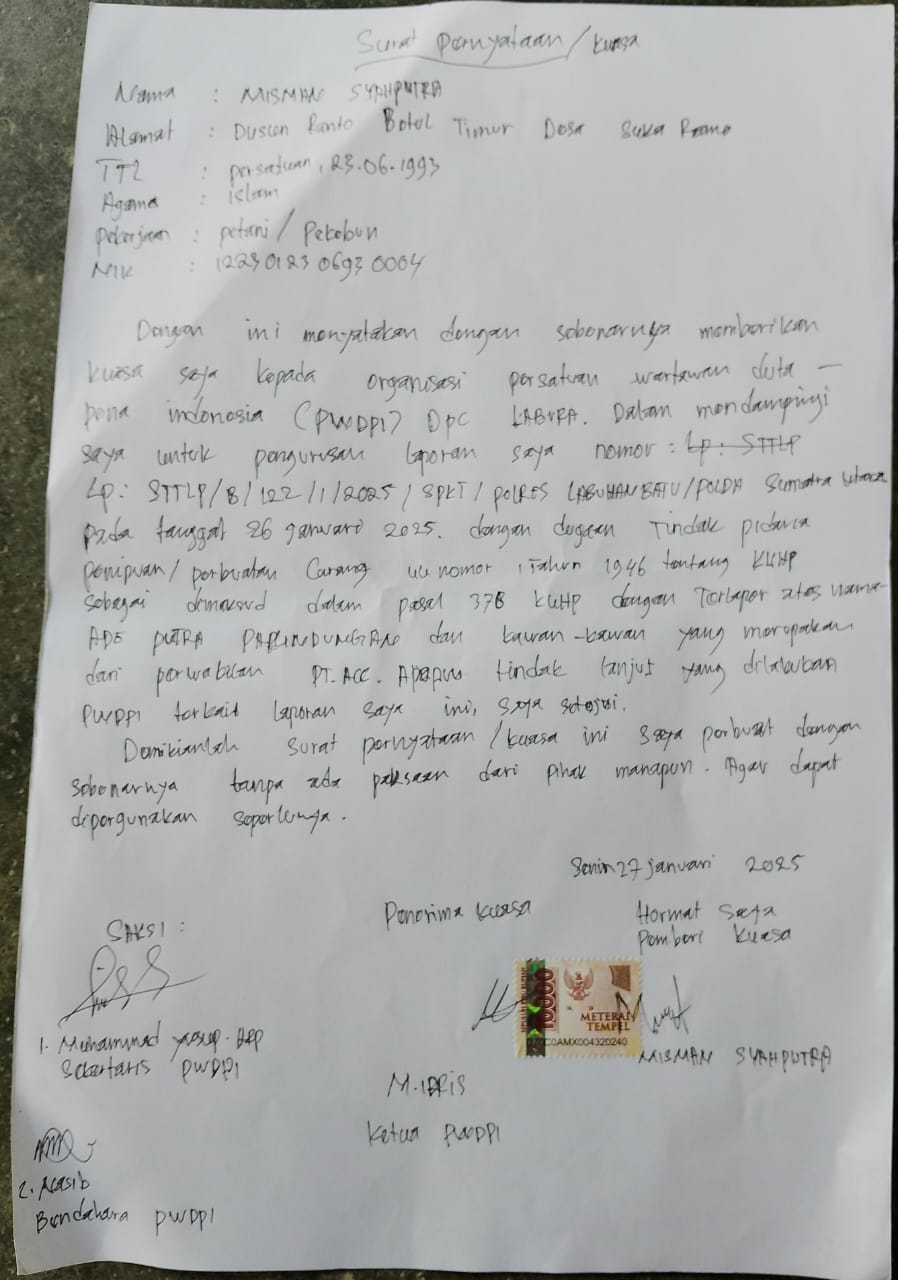 Surat Pernyataan / Kuasa
Nama : MISMAN SYAHPUTRA
Alamat : Dusun Ranto Botol Timur Desa Suka Rame
TTL : persatuan, 23.06.1993
Agama : islam
Pekerjaan : petani / Pekebun
NIK : 1223012306930004
Dengan ini menyatakan dengan sebenarnya memberikan
kuasa saya kepada organisasi persatuan wartawan duta -
pena indonesia (PWDPI) DPC LABURA. Dalam mendampingi
saya untuk pengurusan laporan saya nomor : Lp : STTLP
Lp : STTLP/B/122/1/2025/SPKT/POLRES LABUHANBATU/POLDA Sumatra Utara
pada tanggal 26 januari 2025. dengan dugaan Tindak pidana
penipuan / perbuatan Curang uu nomor 1 Tahun 1946 tentang KUHP
sebagai dimaksud dalam pasal 378 KUHP dengan Terlapor atas nama
ADE PUTRA PARLINDUNGAN dan kawan-kawan yang merupakan
dari perwakilan PT. ACC. Apapun tindak lanjut yang dilakukan
PWDPI terkait laporan saya ini, saya setujui.
Demikianlah surat pernyataan / kuasa ini saya perbuat dengan
sebenarnya tanpa ada paksaan dari pihak manapun. Agar dapat
dipergunakan seperlunya.
Senin 27 januari 2025
SAKSI : Penerima Kuasa Hormat Saya
Pemberi Kuasa
10000
METERAI
TEMPEL
C0AMX004320240
1. Muhammad yusup. HSP MISMAN SYAHPUTRA
Sekertaris PWDPI
M. IDRIS
Ketua PWDPI
2. Nasib
Bendahara PWDPI